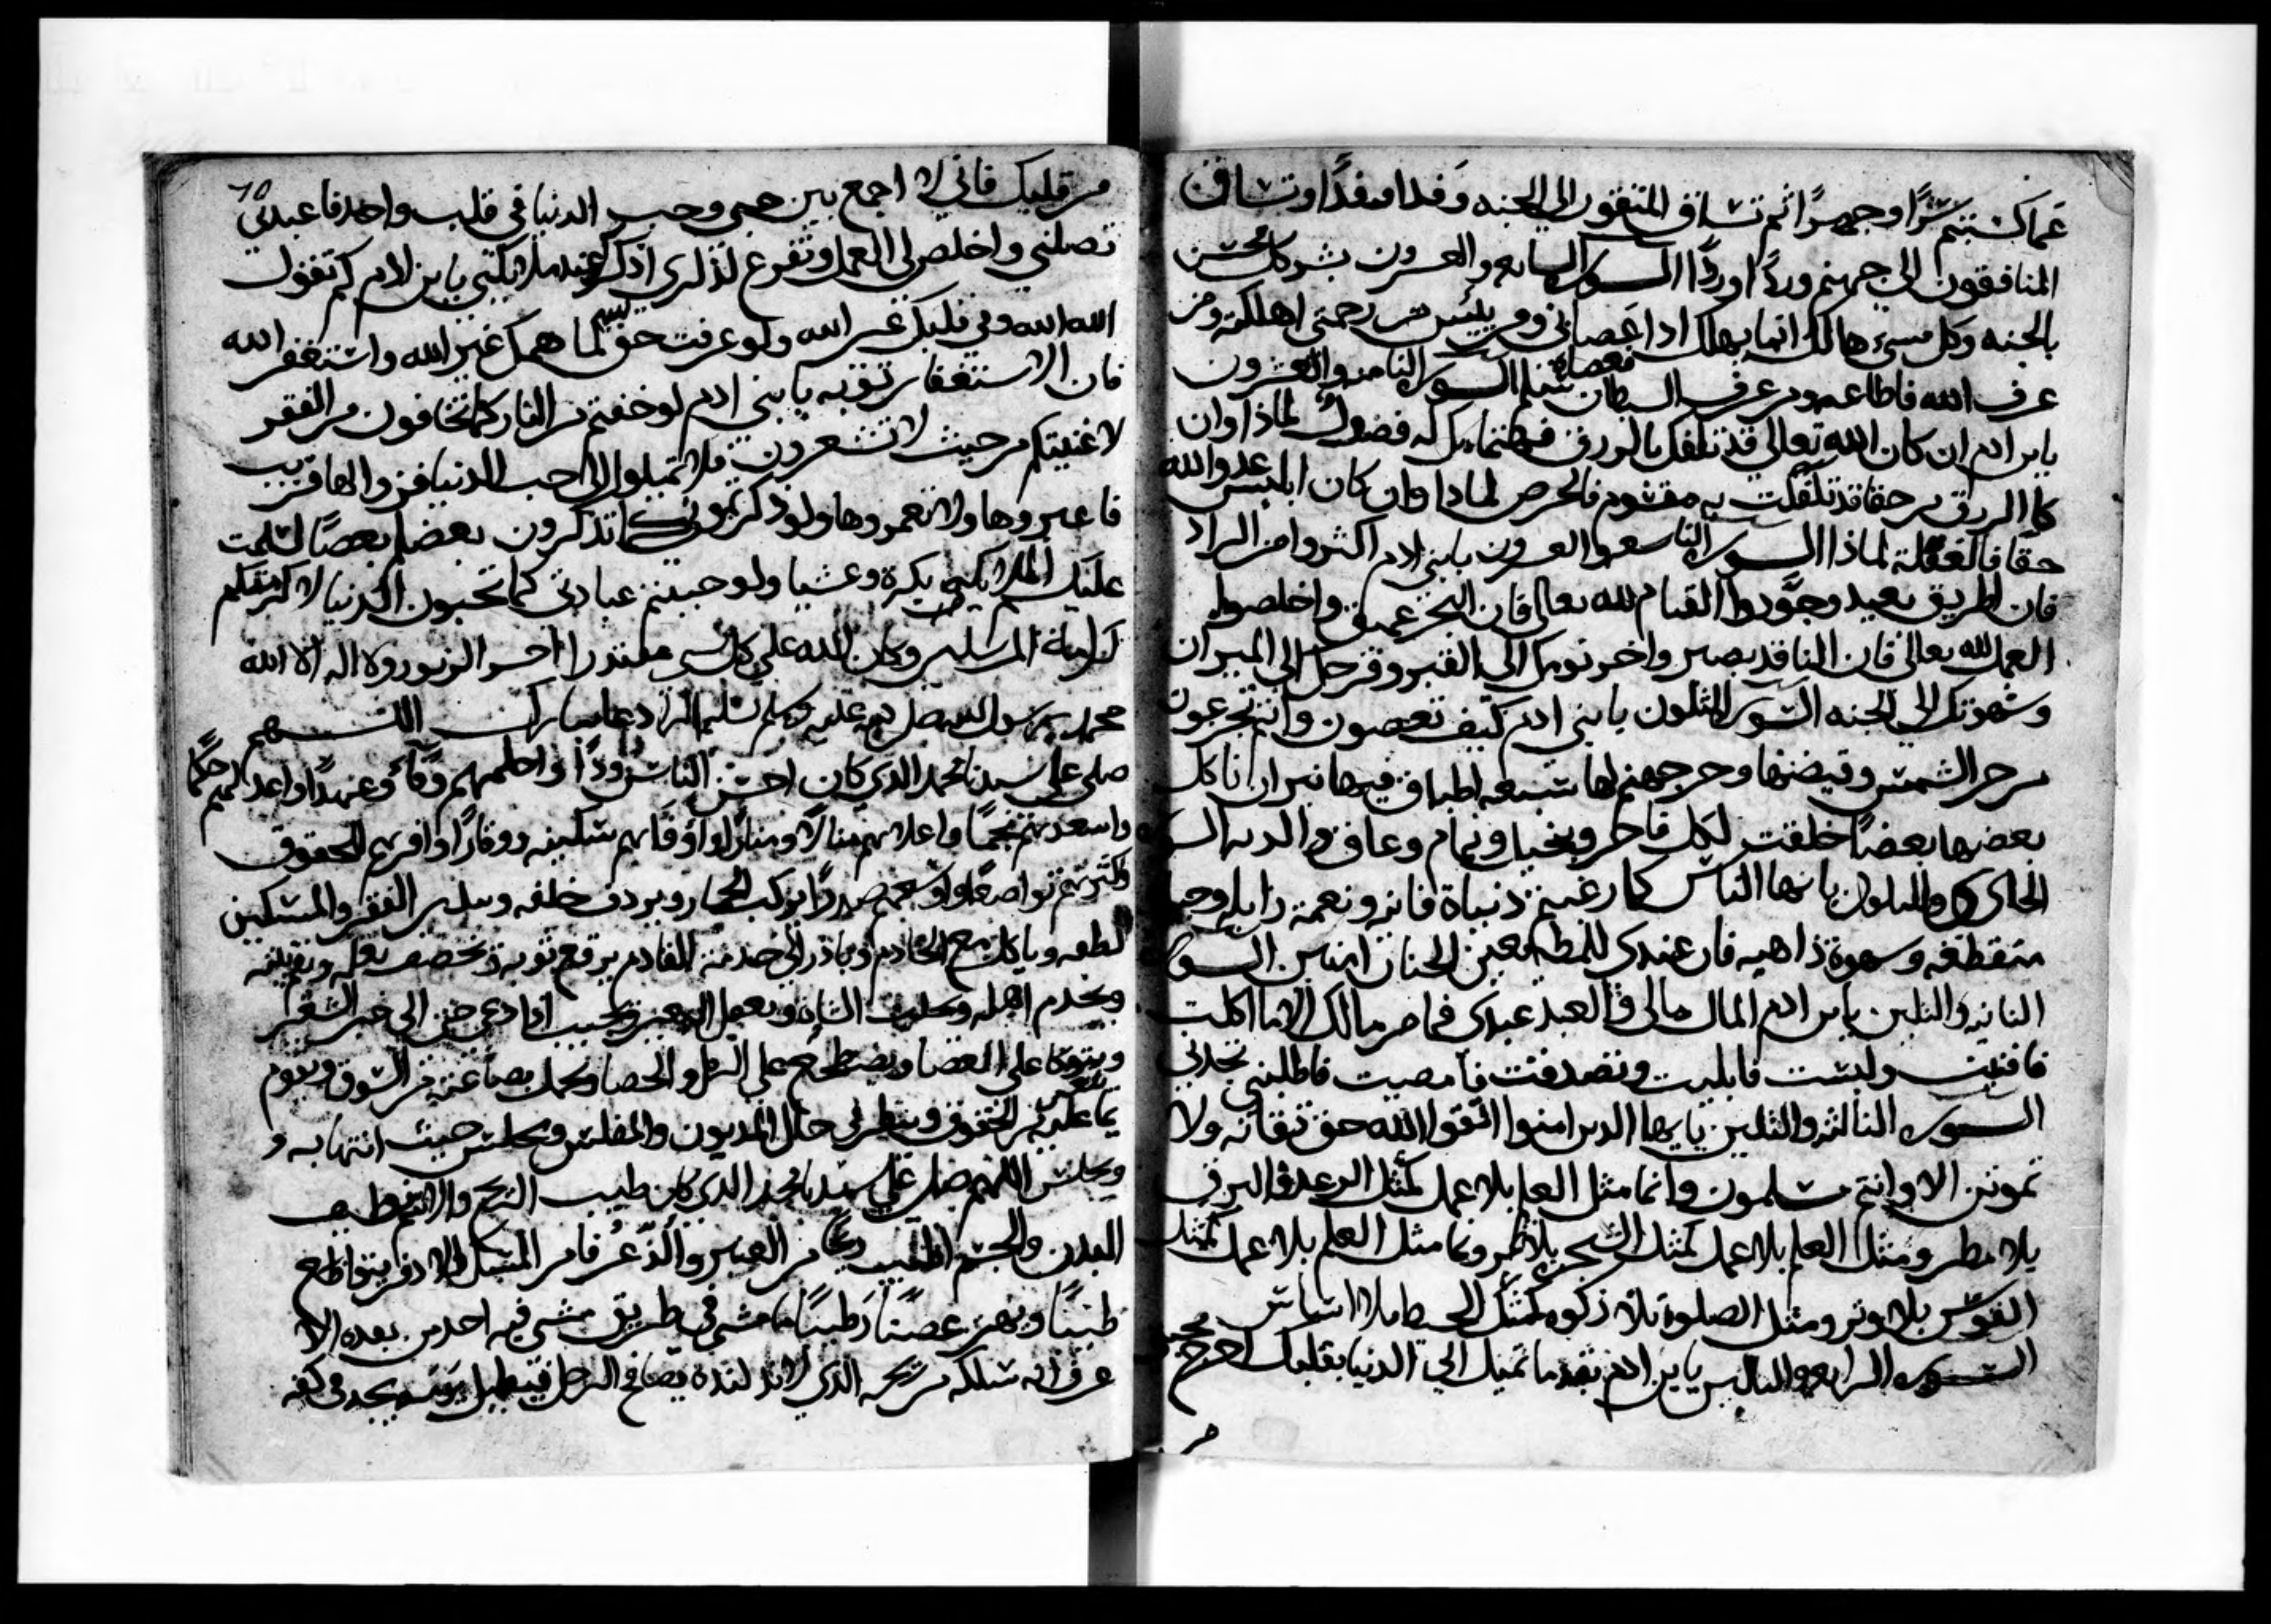 عما كسبتم سرًا وجهرًا ثم تساق المتقون الى الجنه وفدا وفدًا وتساق
المنافقون الى جهنم وردًا وردًا السوره السابعه والعشرون بشر كل محسن
بالجنه وكل مسيء هالك انما يهلك اذا عصاني ومن يئيس من رحمتي اهلكته ومن
عرف الله فاطاعه ومن عرف الشيطان فعصاه سلم السوره الثامنه والعشرون
يابن ادم ان كان الله تعالى قد تكفل بالرزق فاهتمامك له فضول لماذا وان
كان الرزق حقا قد تكفلت به مقسوم فالحرص لماذا وان كان ابليس عدو الله
حقا فالغفلة لماذا السوره التاسعه والعشرون يابني ادم اكثروا من الزاد
فان الطريق بعيد وجودوا القيام لله تعالى فان البحر عميق واخلصوا
العمل لله تعالى فان الناقد بصير واخر نومك الى القبر وفرحك الى الميزان
وشهوتك الى الجنه السوره الثلثون يابني ادم كيف تعصون وانتم تجزعون
من حر الشمس وقيضها وحر جهنم لها سبعه اطباق فيها نيران تاكل
بعضها بعضًا خلقت لكل فاجر وبخيل ونمام وعاق والديه السوره
الحادي والثلثون يا ايها الناس كما رغبتم دنياة فانيه ونعمة زايله وحياة
متقطعه وشهوة ذاهبه فان عندي للمطيعين الجنان السوره
الثانيه والثلثين يابن ادم المال مالي والعبد عبدي فما من مالك الا ما اكلت
فافنيت ولبست فابليت وتصدقت فامضيت فاطلبني تجدني
السوره الثالثه والثلثين يا ايها الذين امنوا اتقوا الله حق تقاته ولا
تموتن الا وانتم مسلمون وانما مثل العلم بلا عمل كمثل الرعد والبرق
بلا مطر ومثل العلم بلا عمل كمثل الشجر بلا ثمر وانما مثل العلم بلا عمل كمثل
القوس بلا وتر ومثل الصلوة بلا زكوه كمثل الحيطا بلا اساس
السوره الرابعه والثلثين يابن ادم بقدر ما تميل الى الدنيا بقلبك اخرج محبتي
من
من قلبك فاني لا اجمع بين حبي وحب الدنيا في قلب واحد فاعبدني
تصلني واخلص لي العمل وتفرغ لذكري اذكرك عند ملائكتي يابن ادم كم تقول
الله الله وفي قلبك غير الله ولو عرفت حق الله لما همك غير الله واستغفر الله
فان الاستغفار توبه يابني ادم لو خفتم من النار كما تخافون من الفقر
لاغنيتكم من حيث لا تشعرون فلا تميلوا الى حب الدنيا فزوالها قريب
فاعبروها ولا تعمروها ولو ذكرتموني كما تذكرون بعضكم بعضًا لسلمت
عليكم الملائكه بكرة وعشيا ولو حببتم عبادتي كما تحبون الدنيا لاكرمتكم
كرامة المرسلين وكان الله على كل شي مقتدرا اخر الزبور ولا اله الا الله
محمد رسول الله صلى الله عليه وسلم تسليما دعا مبارك اللهم
صلي على سيدنا محمد الذي كان احسن الناس ودًا واحلمهم وفاً وعهدًا واعدلهم حكمًا
واسعدهم نجمًا واعلاهم منالا ومنارًا واوفاهم سكينه ووقارًا واقربهم للحقوق
واكثرهم تواضعًا واوسعهم صدرًا يركب الحمار ويردف خلفه الفقير والمسكين
لطفه وياكل مع الخادم وبادر الى خدمة القادم يرقع ثوبه ويخصف نعله
ويخدم اهله ويحلب الشاة ويجيب اذا دعي حتى الى خبز الشعير
ويتوكا على العصا ويضطجع على الرمل والحصا ويحمل بضاعته من السوق ويقوم
بما عليه من الحقوق وينظر في حال المديون والمفلس ويجلس حيث انتها به و
ويجلس اللهم صل على سيدنا محمد الذي كان طيب الريح
البدن والجسم اطيب ريحًا من العبير
طيبًا ويهز غصنًا رطيبًا ما مشى في طريق مشى فيه احد من بعده الا
عرف انه سلكه من ريحه الذي يصافح الرجل يجد في كفه